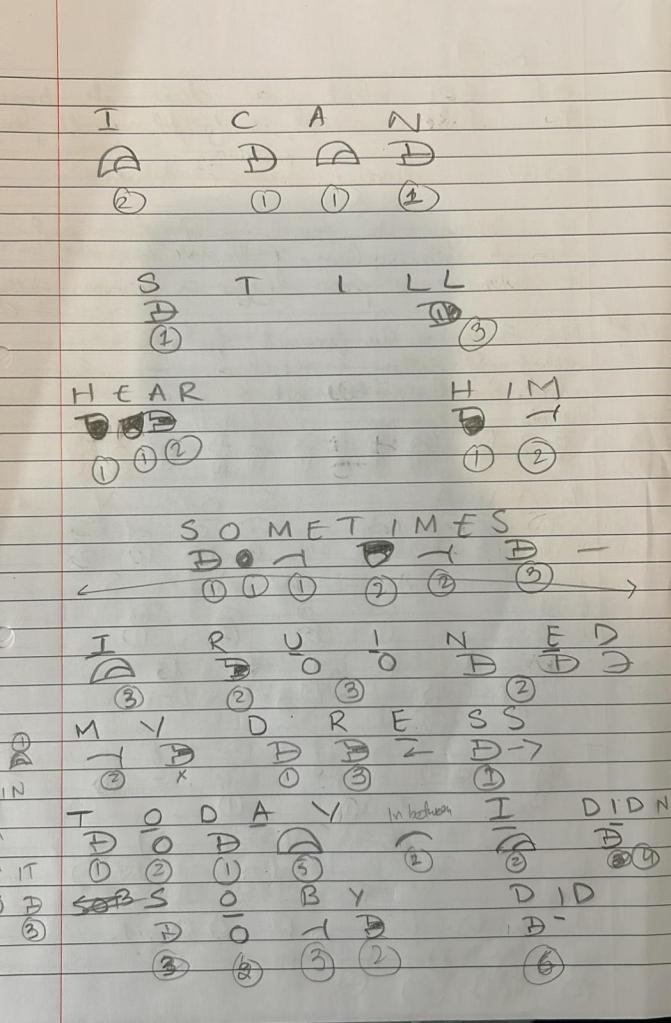 I CAN
② ① ① ①
STILL
① ③
HEAR HIM
① ① ② ① ②
SOMETIMES
① ① ① ② ② ③
I RUINED
③ ② ③ ②
MY DRESS
② x ① ③ ①
IN
TODAY In between I DIDN
IT ① ② ① ③ ② ② ④
SOB SO BY DID
③ ③ ② ③ ② ⑥